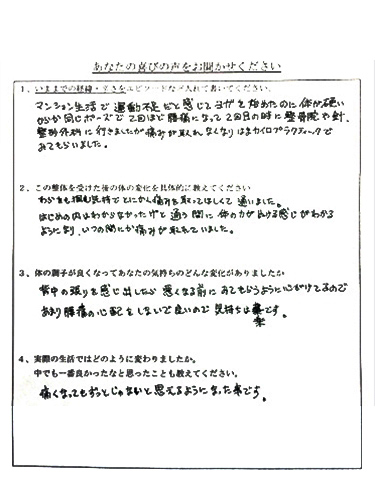 あなたの喜びの声をお聞かせください
1、いままでの経緯・辛さをエピソードなど入れて書いてください。
マンション生活で運動不足だと感じてヨガを始めたのに体が硬い
からか同じポーズで2回ほど腰痛になって2回目の時に整骨院や針、
整形外科に行きましたが痛みが取れなくなりはまカイロプラクティックで
みてもらいました。
2、この整体を受けた後の体の変化を具体的に教えてください
わらをも掴む気持でとにかく痛みを取ってほしくて通いました。
はじめの内はわからなかったけど通う間に体の力が抜ける感じがわかる
ようになり、いつの間にか痛みが取れていました。
3、体の調子が良くなってあなたの気持ちのどんな変化がありましたか
背中の張りを感じ出したら悪くなる前にみてもらうように心がけてるので
あまり腰痛の心配をしないで良いので気持ちは
楽です。
4、実際の生活ではどのように変わりましたか。
中でも一番良かったなと思ったことも教えてください。
痛くなってもずっとじゃないと思えるようになった事です。